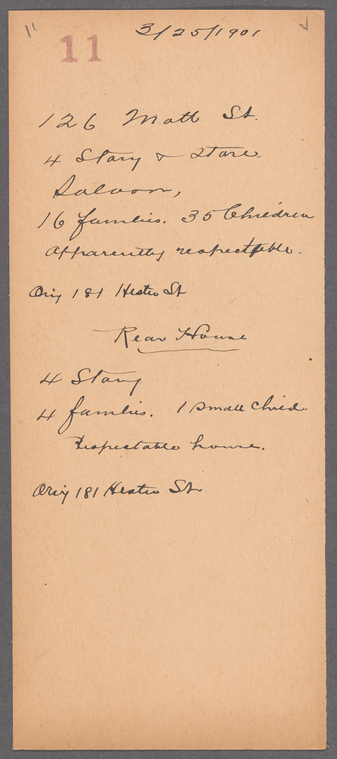 11
3/25/1901
126 Mott St.
4 Story & store.
Saloon,
16 families. 35 Children
apparently respectable.
Orig 181 Hester St
Rear House
4 Story
4 families. 1 small child.
Respectable house.
Orig 181 Hester St